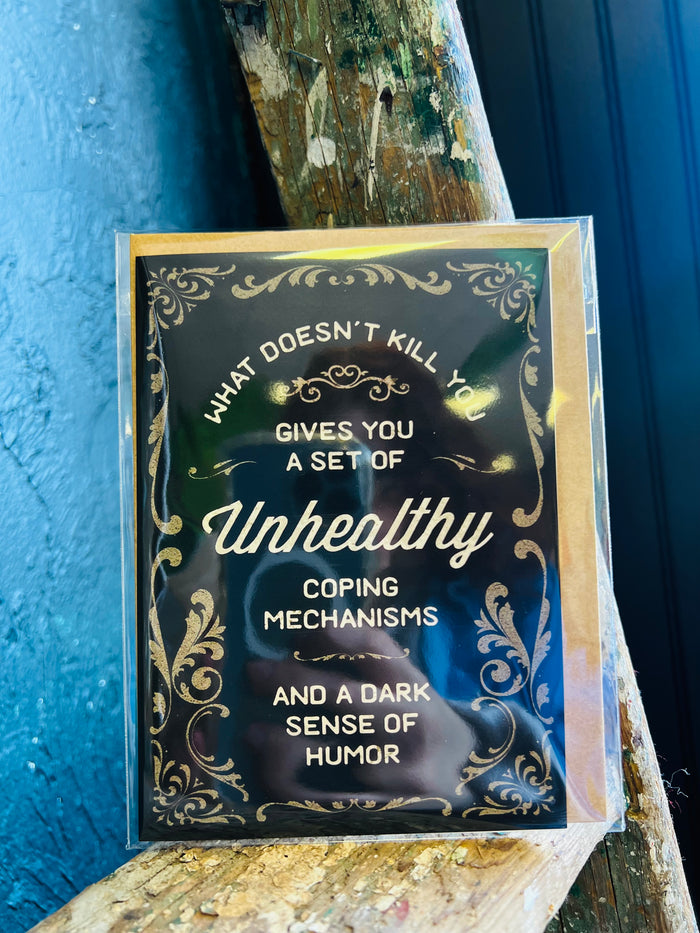 WHAT DOESN'T KILL YOU
GIVES YOU
A SET OF
Unhealthy
COPING
MECHANISMS
AND A DARK
SENSE OF
HUMOR